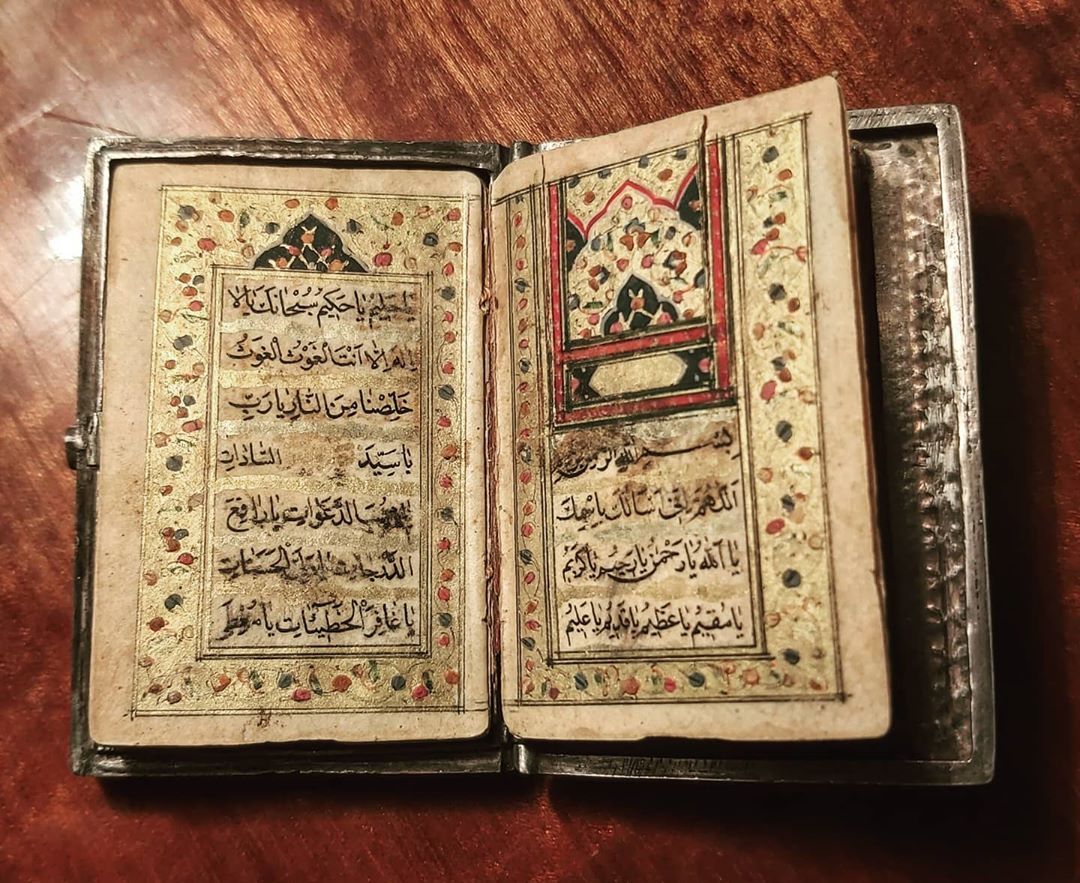 بِسْمِ اللهِ الرحمن الرحيم
اَللّٰهُمَّ اِنّى اَسْاَلُكَ بِاسْمِكَ
يا اَللهُ يا رَحْمٰنُ يا رَحيمُ يا كَريمُ
يا مُقيمُ يا عَظيمُ يا قَديمُ يا عَليمُ
يا حَليمُ يا حَكيمُ سُبْحانَكَ يا لا
اِلهَ اِلّا اَنْتَ الْغَوْثَ الْغَوْثَ
خَلِّصْنا مِنَ النّارِ يا رَبِّ
يا سَيِّدَ السّاداتِ
الدَّعَواتِ يا رافِعَ
الدَّرَجاتِ الْحَسَناتِ
يا غافِرَ الْخَطيئاتِ يا مُعْطِىَ